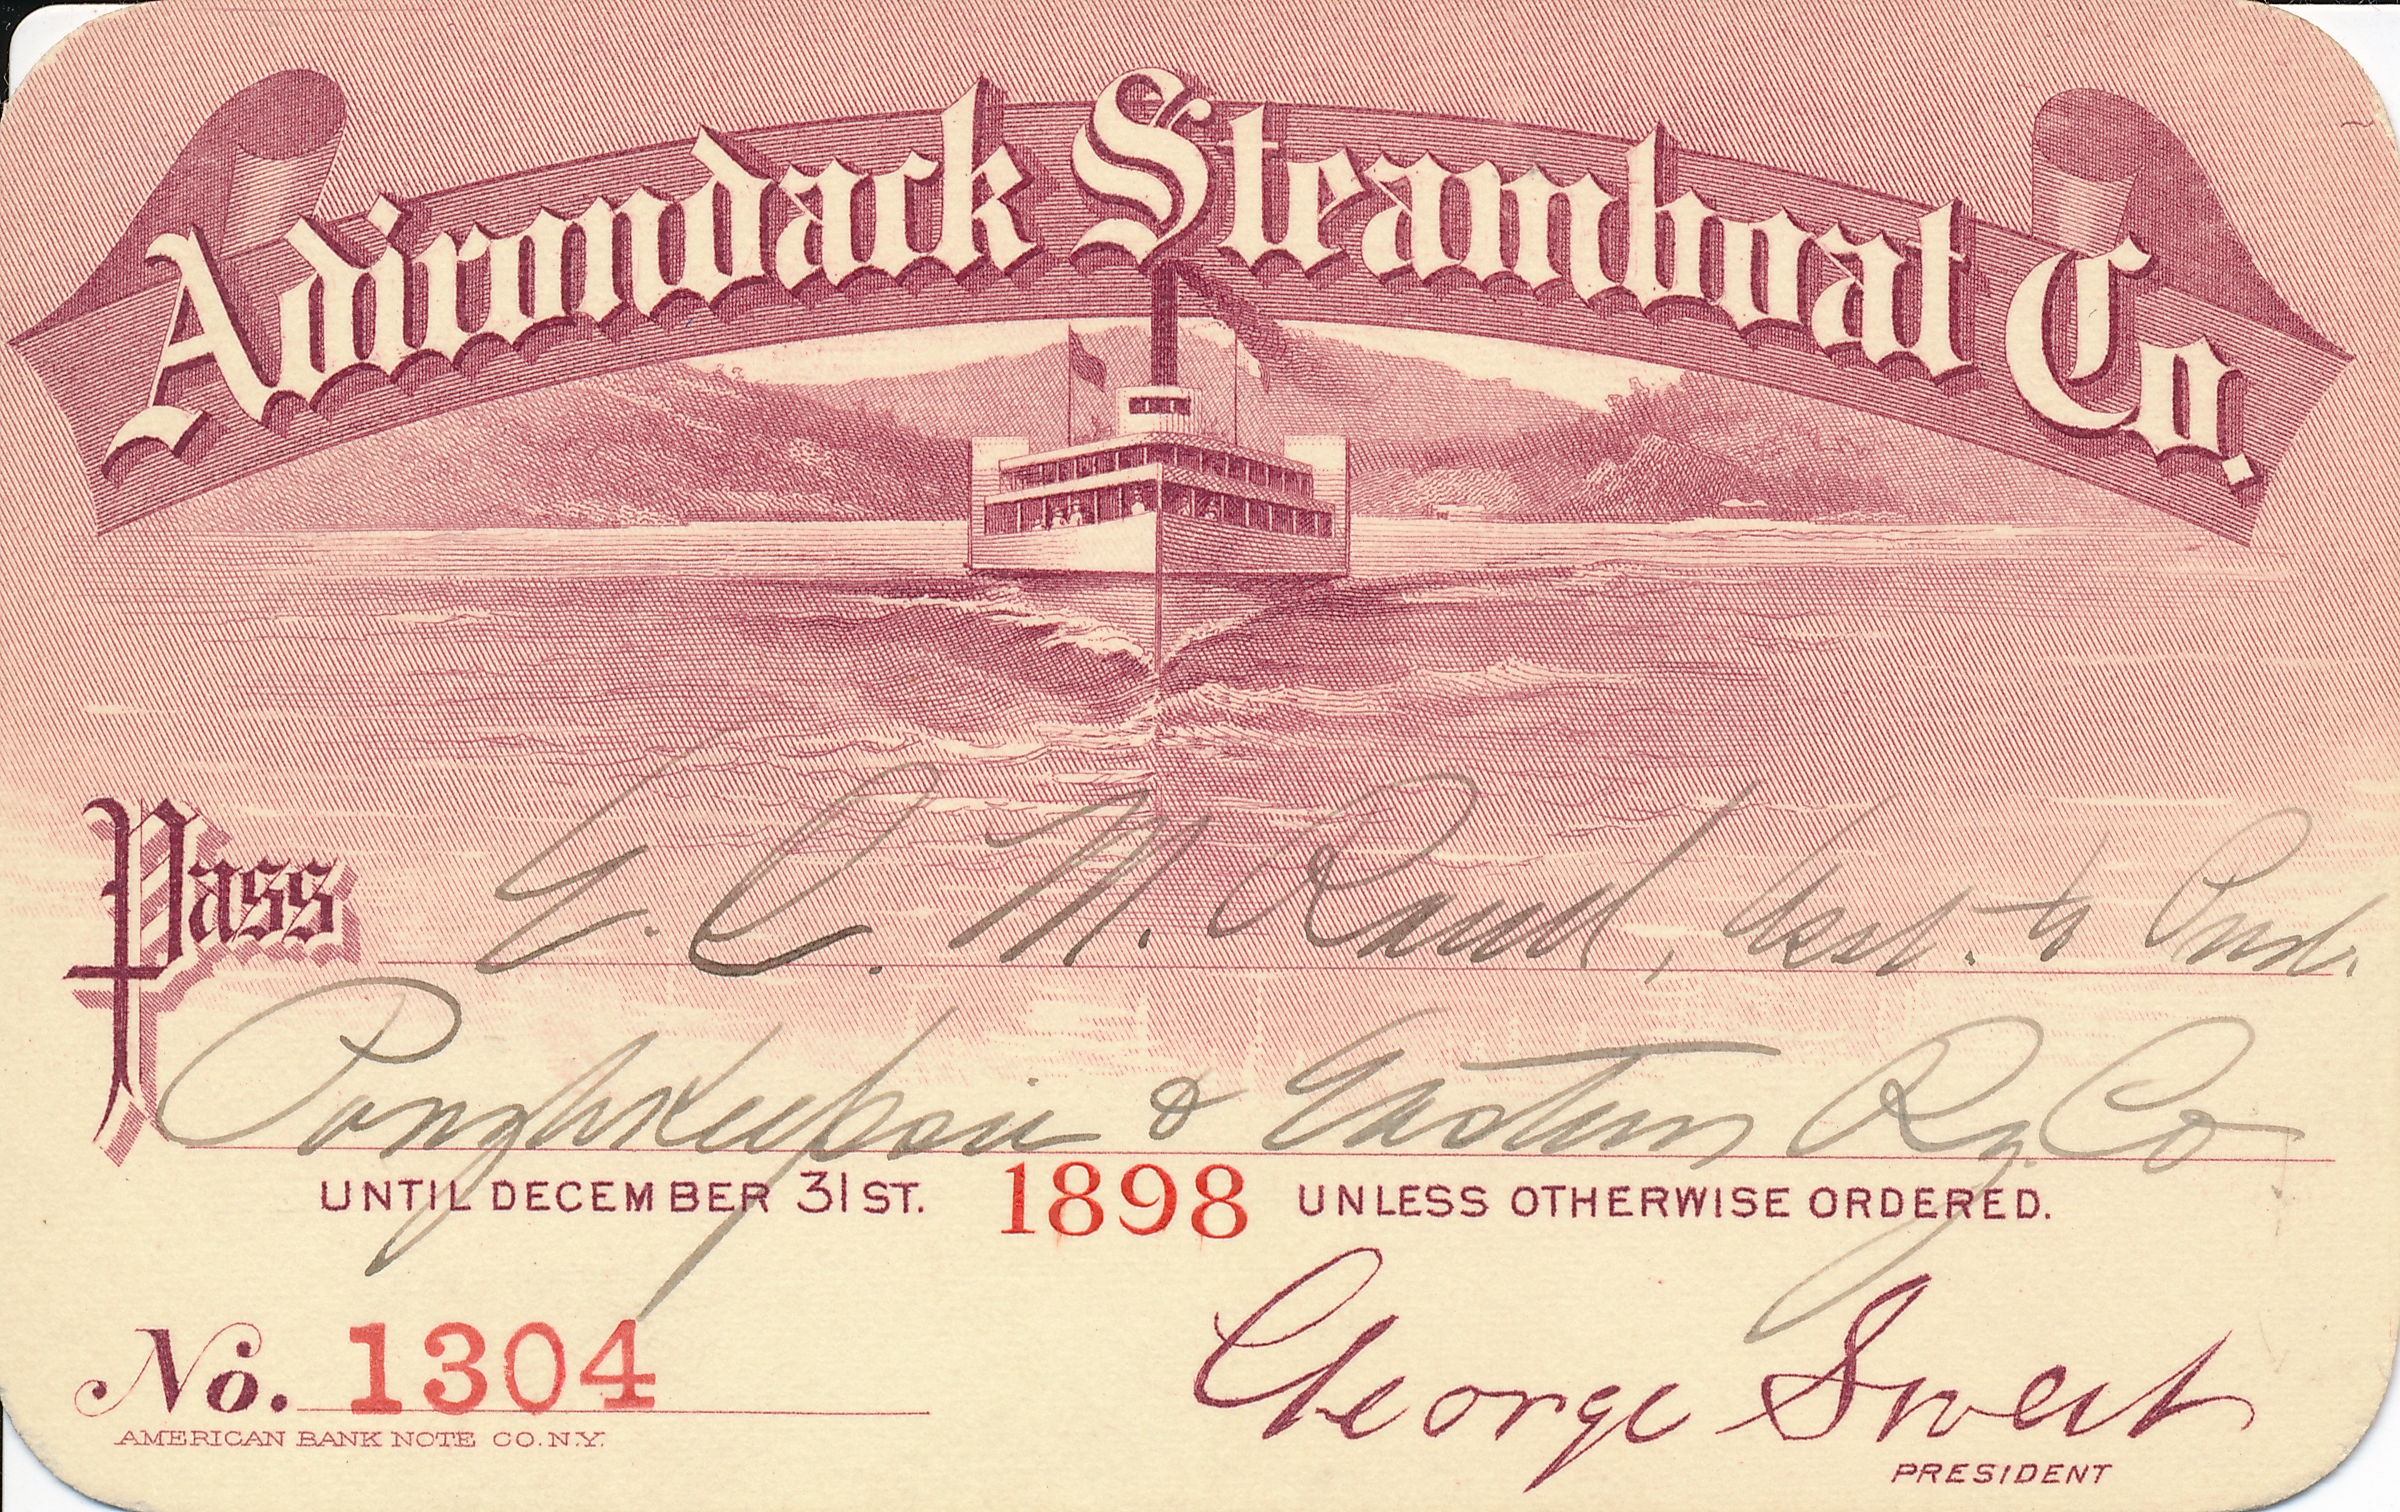 Adirondack Steamboat Co.
Pass E. C. M. Rand, Asst. to Prest.
Poughkeepsie & Eastern Ry. Co
UNTIL DECEMBER 31ST. 1898 UNLESS OTHERWISE ORDERED.
No. 1304
George Sweet
AMERICAN BANK NOTE CO. N.Y.
PRESIDENT